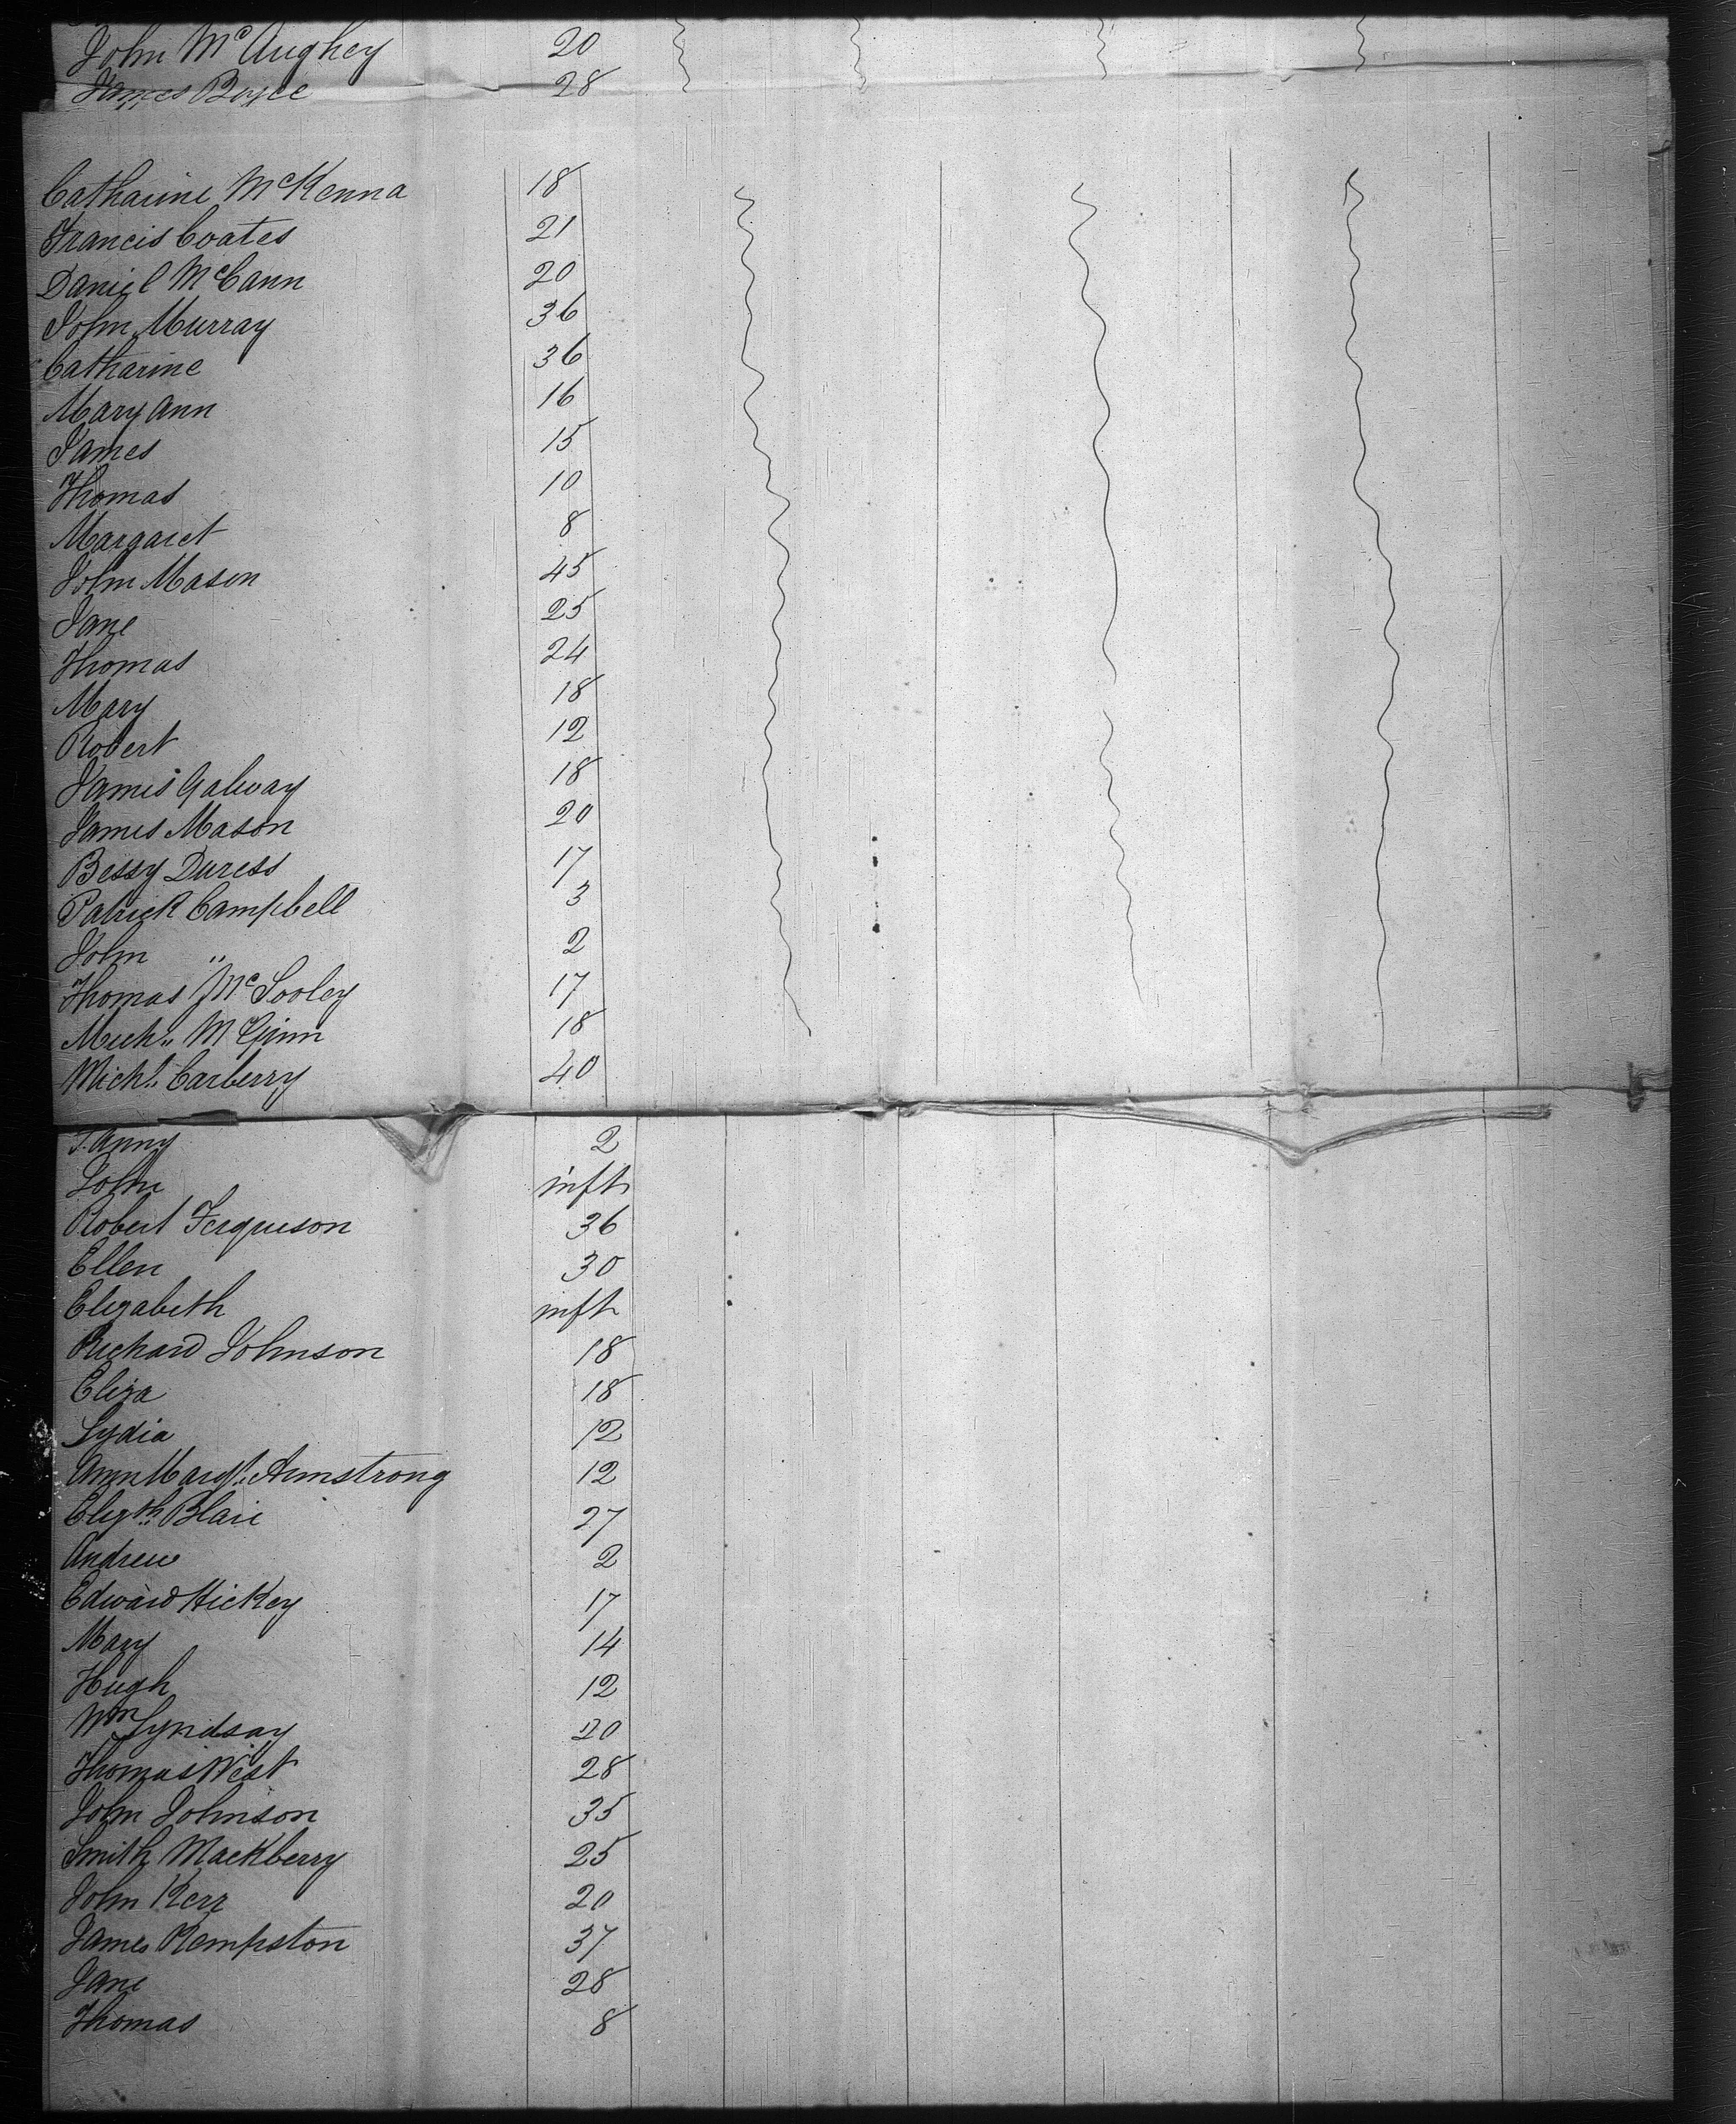 John McAughey 20
James Boyce 28
Catharine McKenna 18
Francis Coates 21
Daniel McCann 20
John Murray 36
Catharine 36
Mary Ann 16
James 15
Thomas 10
Margaret 8
John Mason 45
Jane 25
Thomas 24
Mary 18
Robert 12
James Galway 18
James Mason 20
Bessy Duress 17
Patrick Campbell 3
John " 2
Thomas McSooley 17
Mich" McGinn 18
Michl. Carberry 40
Fanny 2
John inft
Robert Ferguson 36
Ellen 30
Elizabeth inft
Richard Johnson 18
Eliza 18
Lydia 12
Ann Margt. Armstrong 12
Elizth Blair 27
Andrew 2
Edward Hickey 17
Mary 14
Hugh 12
Wm Lyndsay 20
Thomas West 28
John Johnson 35
Smith Mackberry 25
John Kerr 20
James Kempston 37
Jane 28
Thomas 8